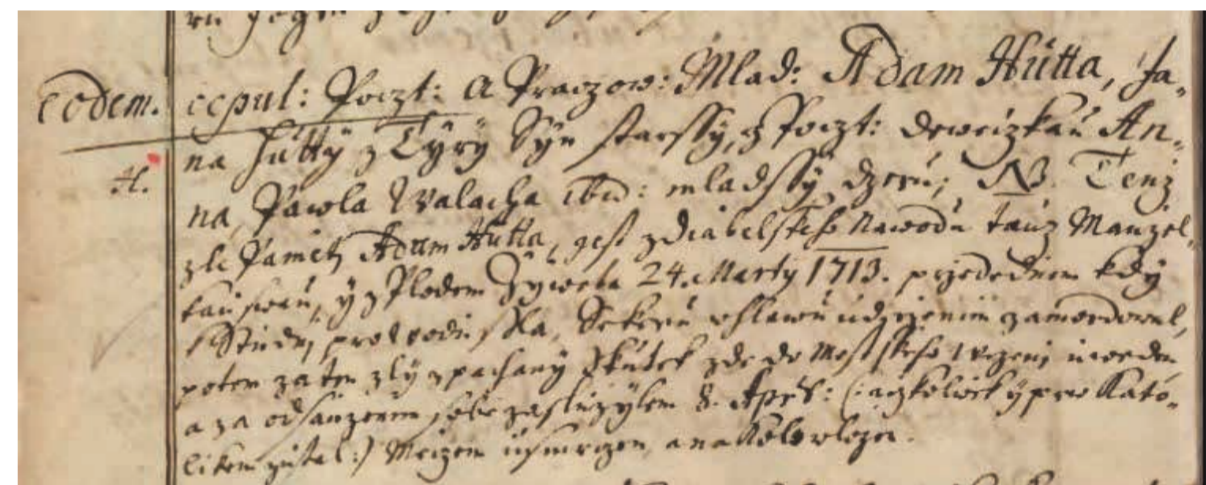 Eodem. copul: Poczt: a Praczow: Mlad: Adam Hutta, Ja,
na Hutty z Tyry Syn starssy, z Poczt: deweizkau An,
H. na, Pawla Walacha ibid: mladssy dzeru; NB. Tenz
zle Pameti Adam Hutta, gest zdiabelskeho Nawodu tauz Manzel,
kau swau, y z Plodem Zywota 24. Marty 1713. przededniem kdy
k Studni pro wodu ssla, Sekeru w hlawu uderzenim zamordowal,
potom za ten zly spachany Skutek zde do Mostskeho Wezeni uweden
a za odsauzenim sobe zasluzylem 8. Apr: (: aczkoliwek y prw Kato,
likem zustal:) Meczem usmrczen, a na Kolo wlozen.